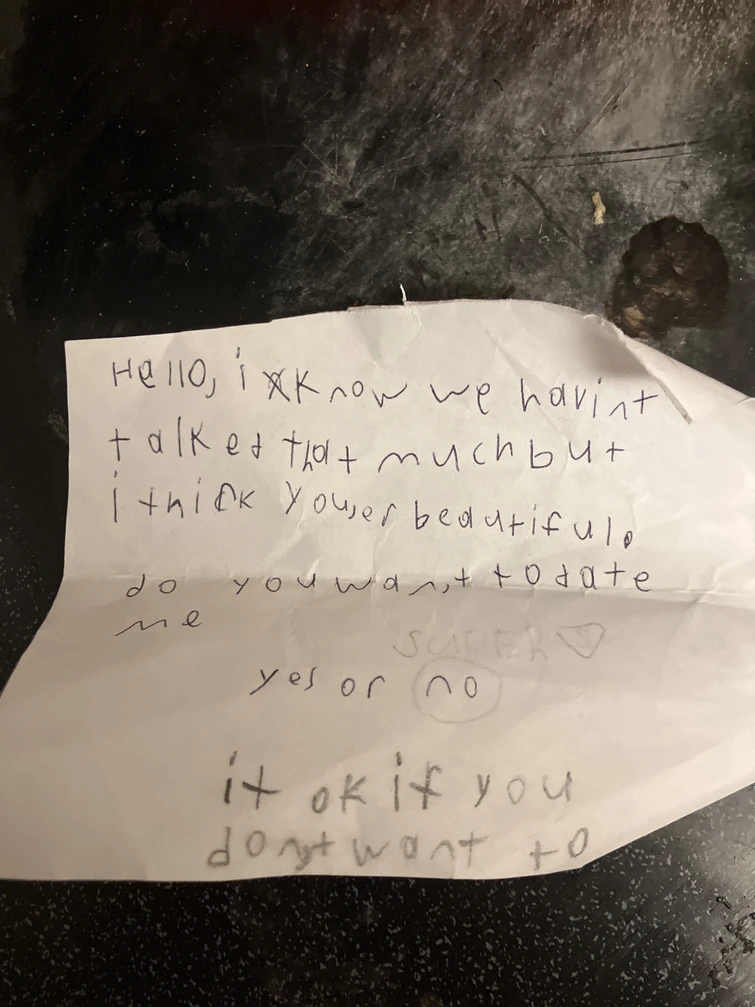 Hello, i know we havint
talked that much but
i think you,er beautiful.
do you wan,t to date
me
yes or no
it ok if you
don,t want to